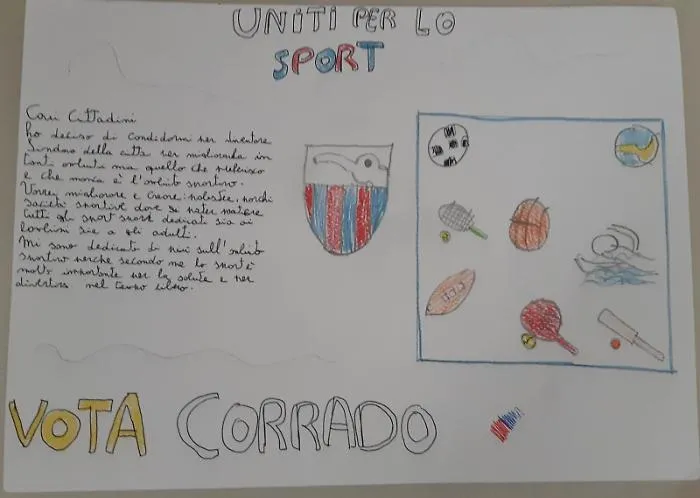 UNITI PER LO
SPORT
Cari Cittadini
ho deciso di candidarmi per diventare
Sindaco della città per migliorarla in
tanti ambiti ma quello che preferisco
e che manca è l'ambito sportivo.
Vorrei migliorare e creare: palestre, parchi
società sportive dove si poter
tutti gli sport dedicati sia ai
bambini sia a gli adulti.
Mi sono dedicato di più sull'ambito
sportivo perche secondo me lo sport è
molto importante per la salute e per
divertirsi nel tempo libero.
VOTA CORRADO